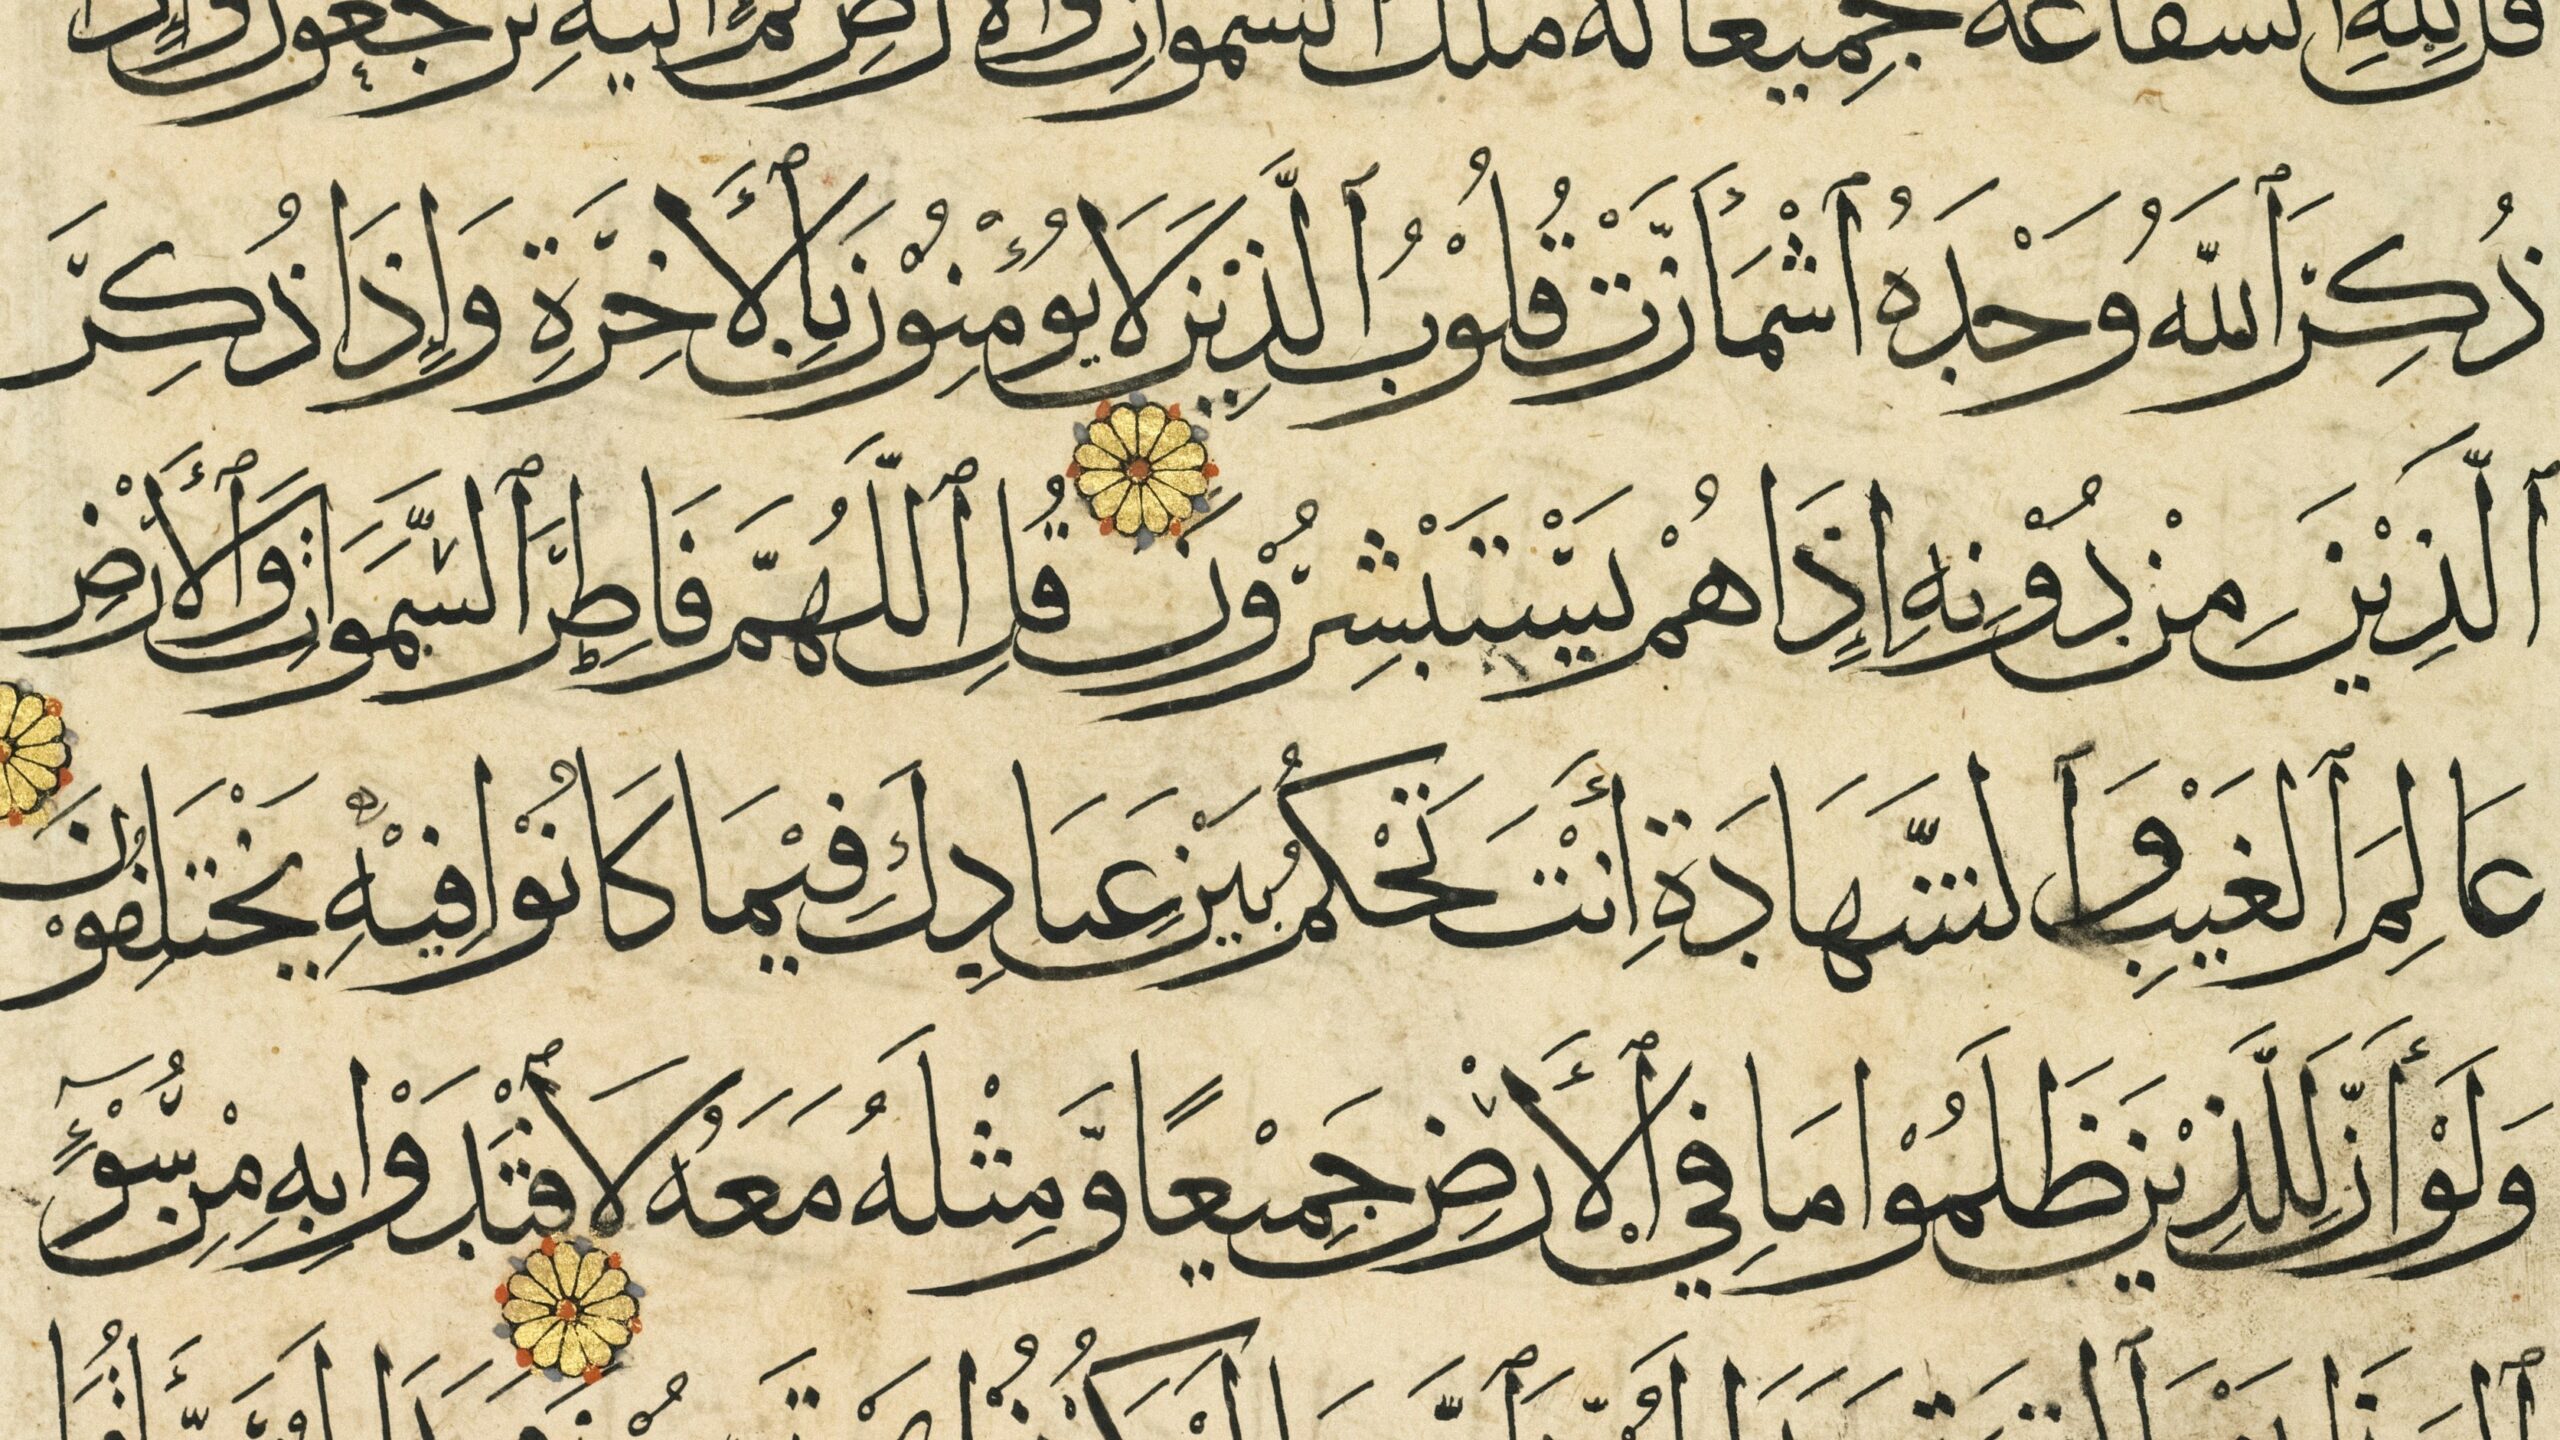 قل لله الشفاعة جميعا له ملك السموات والارض ثم اليه ترجعون واذا
ذُكِرَ ٱللّٰهُ وَحْدَهُ ٱشْمَأَزَّتْ قُلُوْبُ ٱلَّذِيْنَ لَا يُؤْمِنُوْنَ بِٱلْأَخِرَةِ وَإِذَا ذُكِرَ
ٱلَّذِيْنَ مِنْ دُوْنِهِ إِذَا هُمْ يَسْتَبْشِرُوْنَ قُلِ ٱللَّهُمَّ فَاطِرَ ٱلسَّمَوَاتِ وَٱلْأَرْضِ
عَالِمَ ٱلْغَيْبِ وَٱلشَّهَادَةِ أَنْتَ تَحْكُمُ بَيْنَ عِبَادِكَ فِيْمَا كَانُوْا فِيْهِ يَخْتَلِفُوْنَ
وَلَوْ أَنَّ لِلَّذِيْنَ ظَلَمُوْا مَا فِي ٱلْأَرْضِ جَمِيْعًا وَّمِثْلَهُ مَعَهُ لَٱفْتَدَوْا بِهِ مِنْ سُّوْءِ